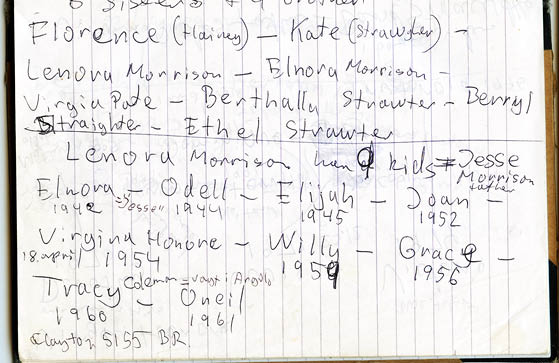 6 Sisters + 4 brother
Florence (Hainey) - Kate (Strawghter) -
Lenora Morrison - Elnora Morrison -
Virgia Pate - Berthally Strawter - Berryl
Straighter - Ethel Strawter
Lenora Morrison han 9 kids = Jesse
Morrison
father
Elnora - Odell - Elijah - Joan -
1942 "Jessee" 1944 1945 1952
Virgina Honore - Willy - Gracy -
18. april 1954 1959 1956
Coleman = vagt i Angola
Tracy - Oneil
1960 1961
Clayton 5155 BR.